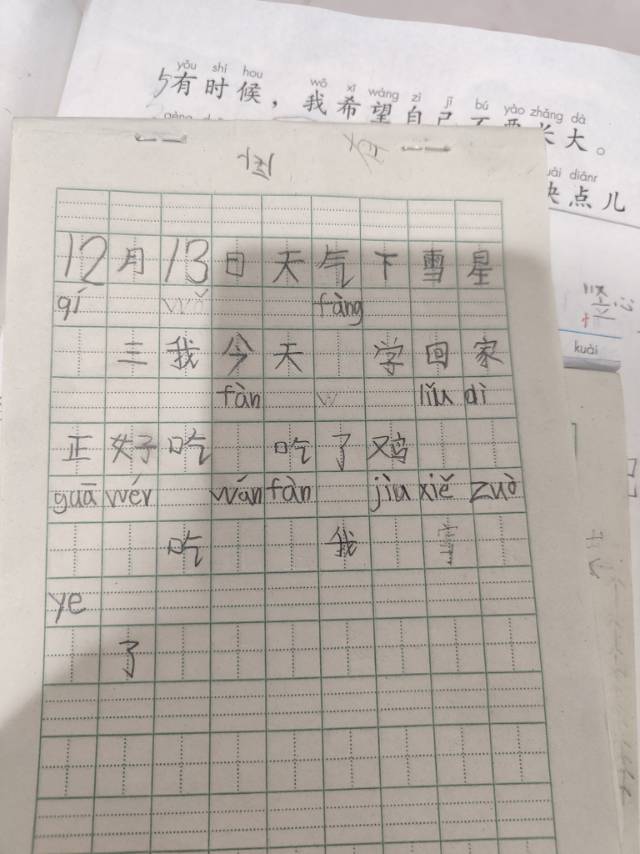 yǒu shí hou wǒ xī wàng zì jǐ bú yào zhǎng dà
有时候，我希望自己不要长大。
diǎnr
快点儿
kuài
12月13日天气下雪星
qí fàng
三我今天 学回家
fàn liǔ dì
正好吃 吃了又鸟
guā wér wán fàn jìu xiě zuò
吃 我 写
ye
了